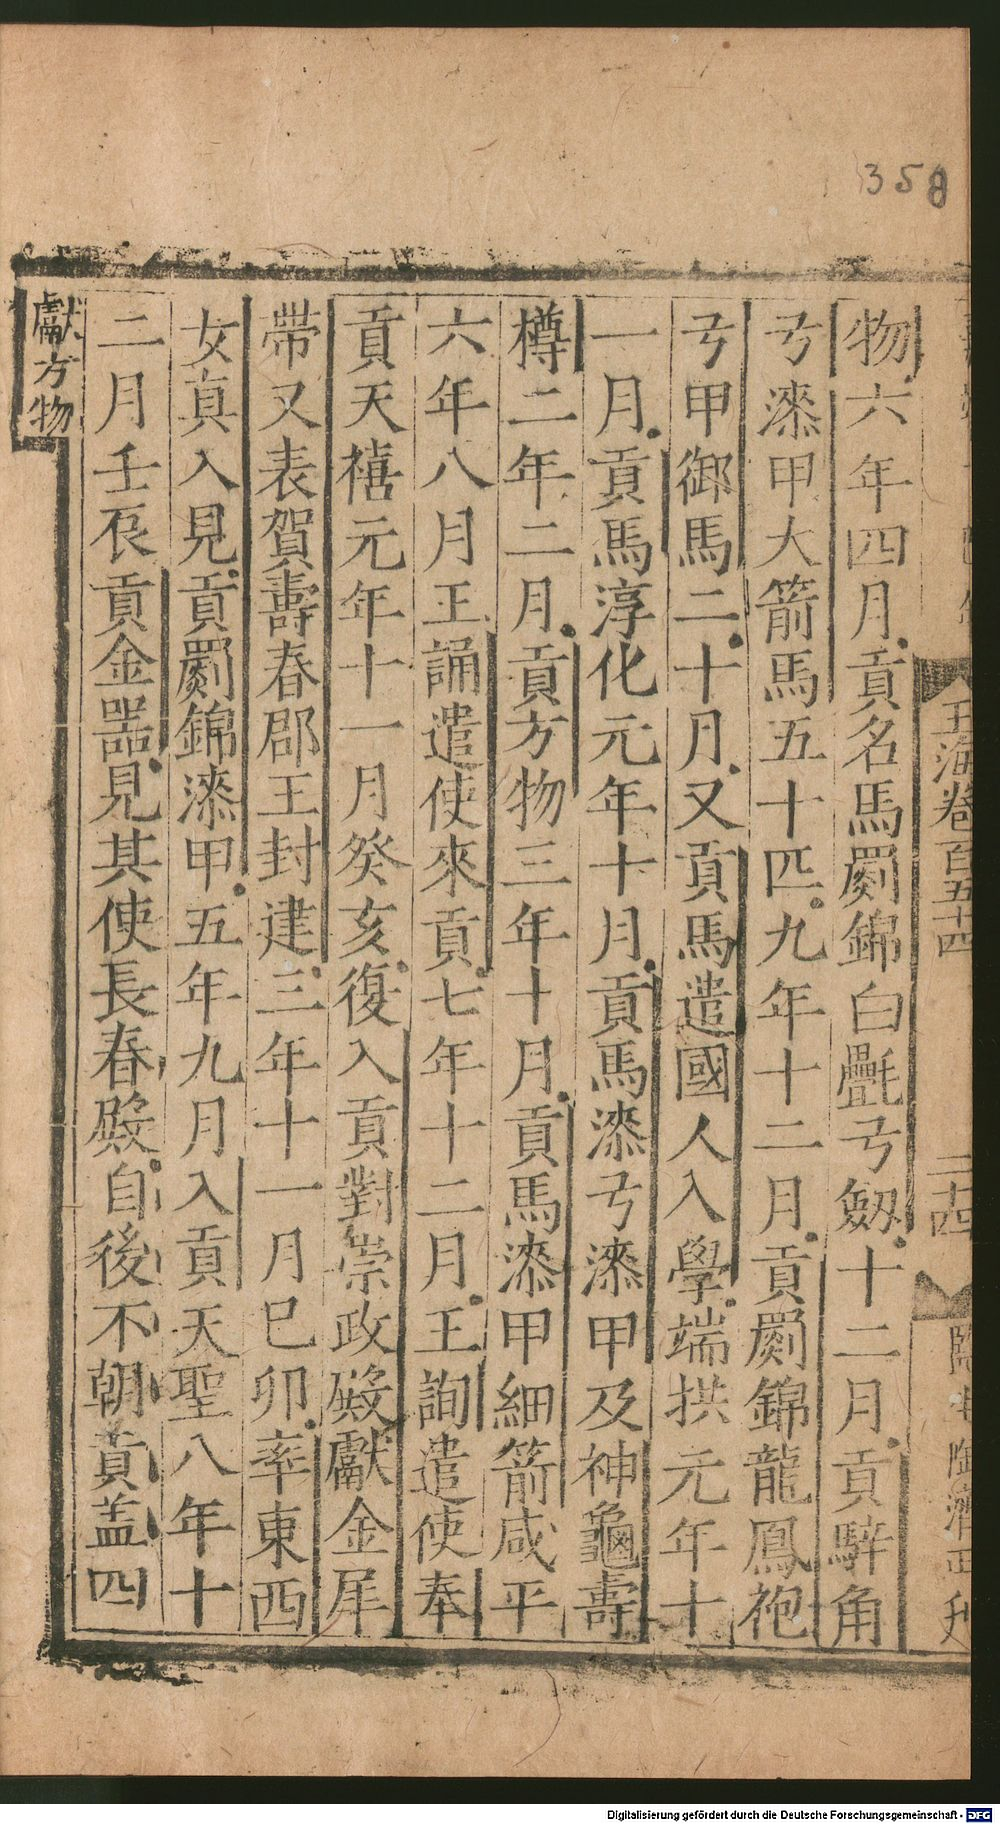 358
玉海卷百五十四
二十四
物六年四月貢名馬罽錦白㲲弓劔十二月貢騂角
弓漆甲大箭馬五十匹九年十二月貢罽錦龍鳳袍
弓甲御馬二十月又貢馬遣國人入學端拱元年十
一月貢馬淳化元年十月貢馬漆弓漆甲及神龜壽
樽二年二月貢方物三年十月貢馬漆甲細箭咸平
六年八月王誦遣使來貢七年十二月王詢遣使奉
貢天禧元年十一月癸亥復入貢對崇政殿獻金犀
帶又表賀壽春郡王封建三年十一月巳卯率東西
女真入見貢罽錦漆甲五年九月入貢天聖八年十
二月壬辰貢金器見其使長春殿自後不朝貢盖四
獻方物
Digitalisierung gefördert durch die Deutsche Forschungsgemeinschaft - DFG